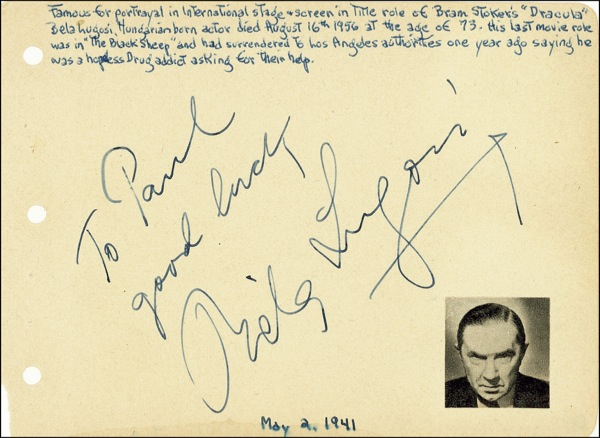 Famous for portrayal in International stage & screen in Title role of Bram Stoker's "Dracula"
Bela Lugosi, Hungarian born actor died August 16th 1956 at the age of 73. His last movie role
was in "The Black Sheep" and had surrendered to Los Angeles authorites one year ago saying he
was a hopless Drug addict asking for their help.
To Paul
good luck
Bela Lugosi
May 2, 1941